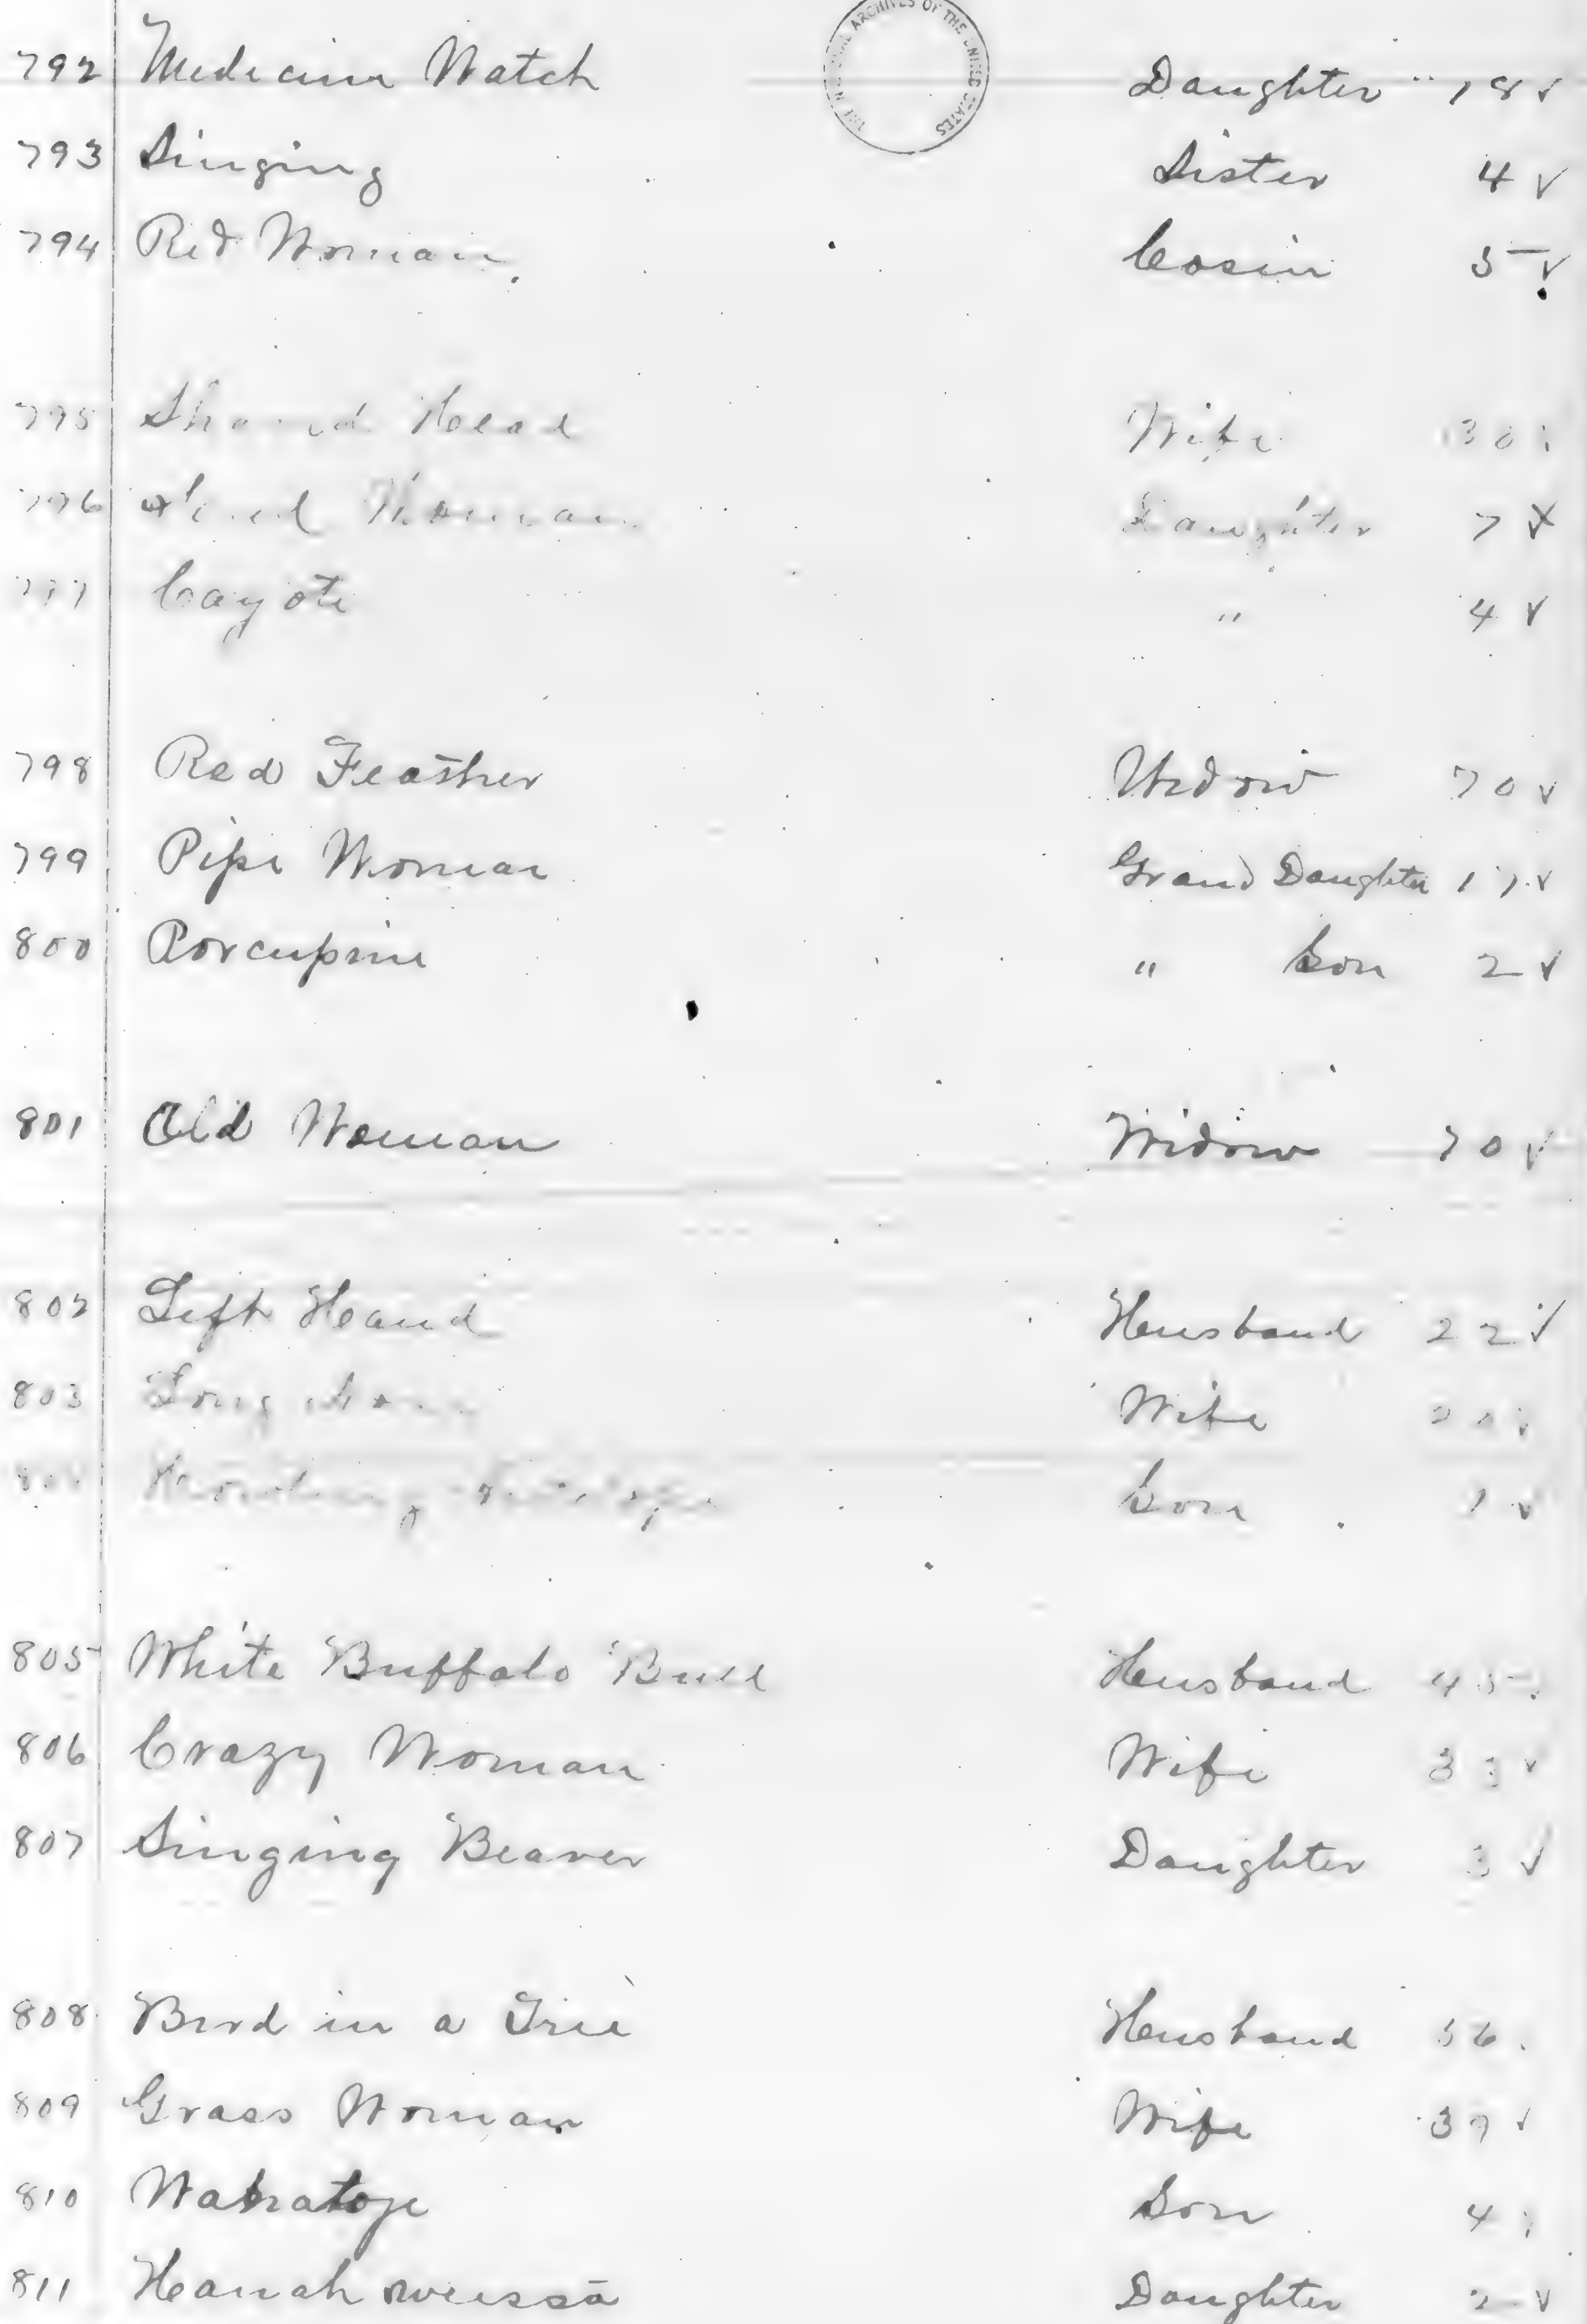 THE NATIONAL ARCHIVES OF THE UNITED STATES
792 Medicine Watch Daughter 18 ✓
793 Singing Sister 4 ✓
794 Red Woman Cosin 5 ✓
795 Head Wife 30
796 Woman Daughter 7
797 Cayote " 4 ✓
798 Red Feather Widow 70 ✓
799 Pipe Woman Grand Daughter 17 ✓
800 Porcupine " Son 2 ✓
801 Old Woman Widow 70 ✓
802 Left Hand Husband 22 ✓
803 Long Wife
804 Son 1 ✓
805 White Buffalo Bull Husband 45
806 Crazy Woman Wife 33 ✓
807 Singing Beaver Daughter 3 ✓
808 Bird in a Tree Husband 56
809 Grass Woman Wife 37 ✓
810 Son 4
811 Daughter 2 ✓